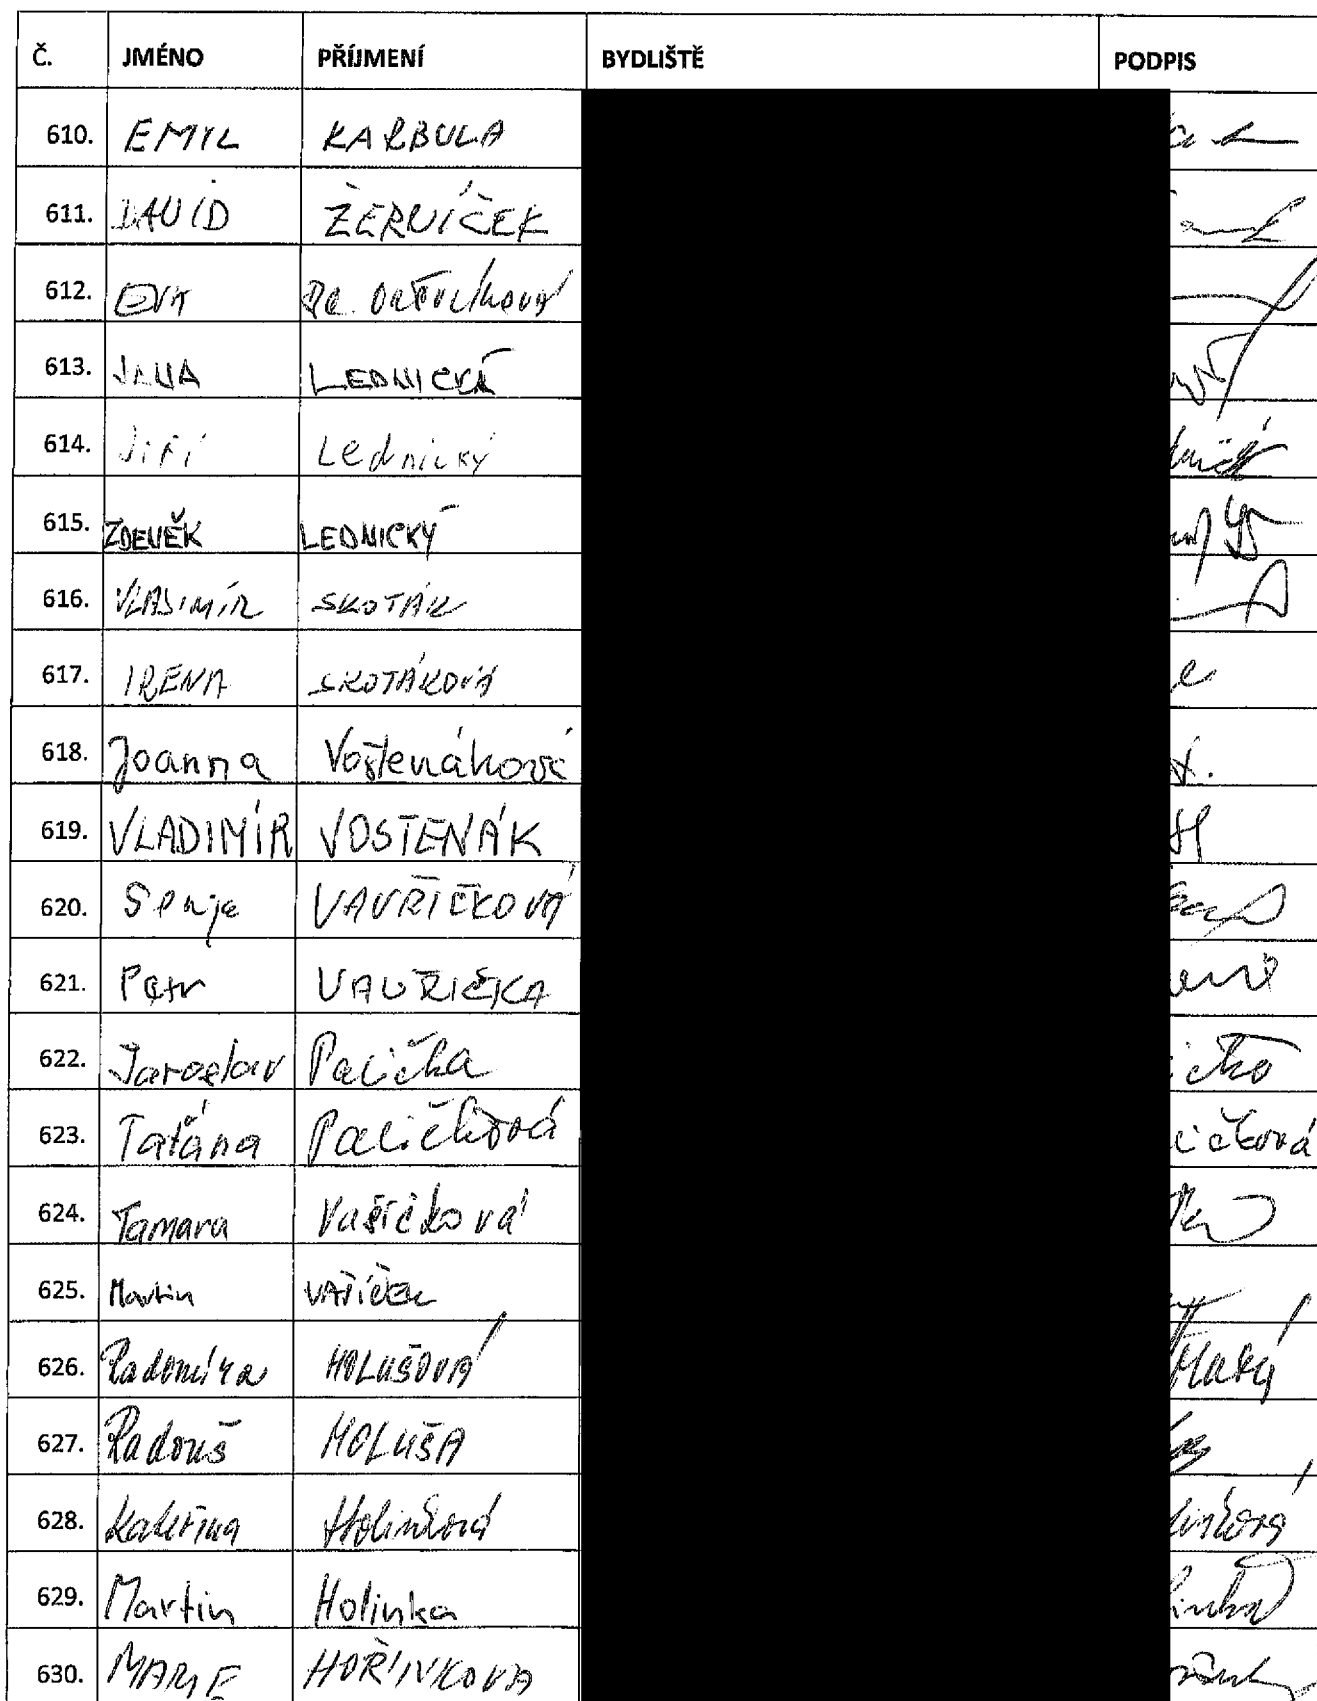 Č. JMÉNO PŘÍJMENÍ BYDLIŠTĚ PODPIS
610. EMIL KARBULA
611. DAVID ŽERNÍČEK
612. EVA
613. JANA LEDNICKÁ
614. Jiří Lednický
615. ZDENĚK LEDNICKÝ
616. VLADIMÍR SKOTÁK
617. IRENA SKOTÁKOVÁ
618. Joanna Vostenáková
619. VLADIMÍR VOSTENÁK
620. VAVŘIČKOVÁ
621. Petr VAVŘIČKA
622. Jaroslav Palička
623. Taťána Paličková ičková
624. Tamara Vašíčková
625. Martin VAŠÍČEK
626. Radomíra HOLUŠOVÁ
627. Radouš HOLUŠA
628. Kateřina Holinková inková
629. Martin Holinka
630. MARIE HOŘÍNKOVÁ